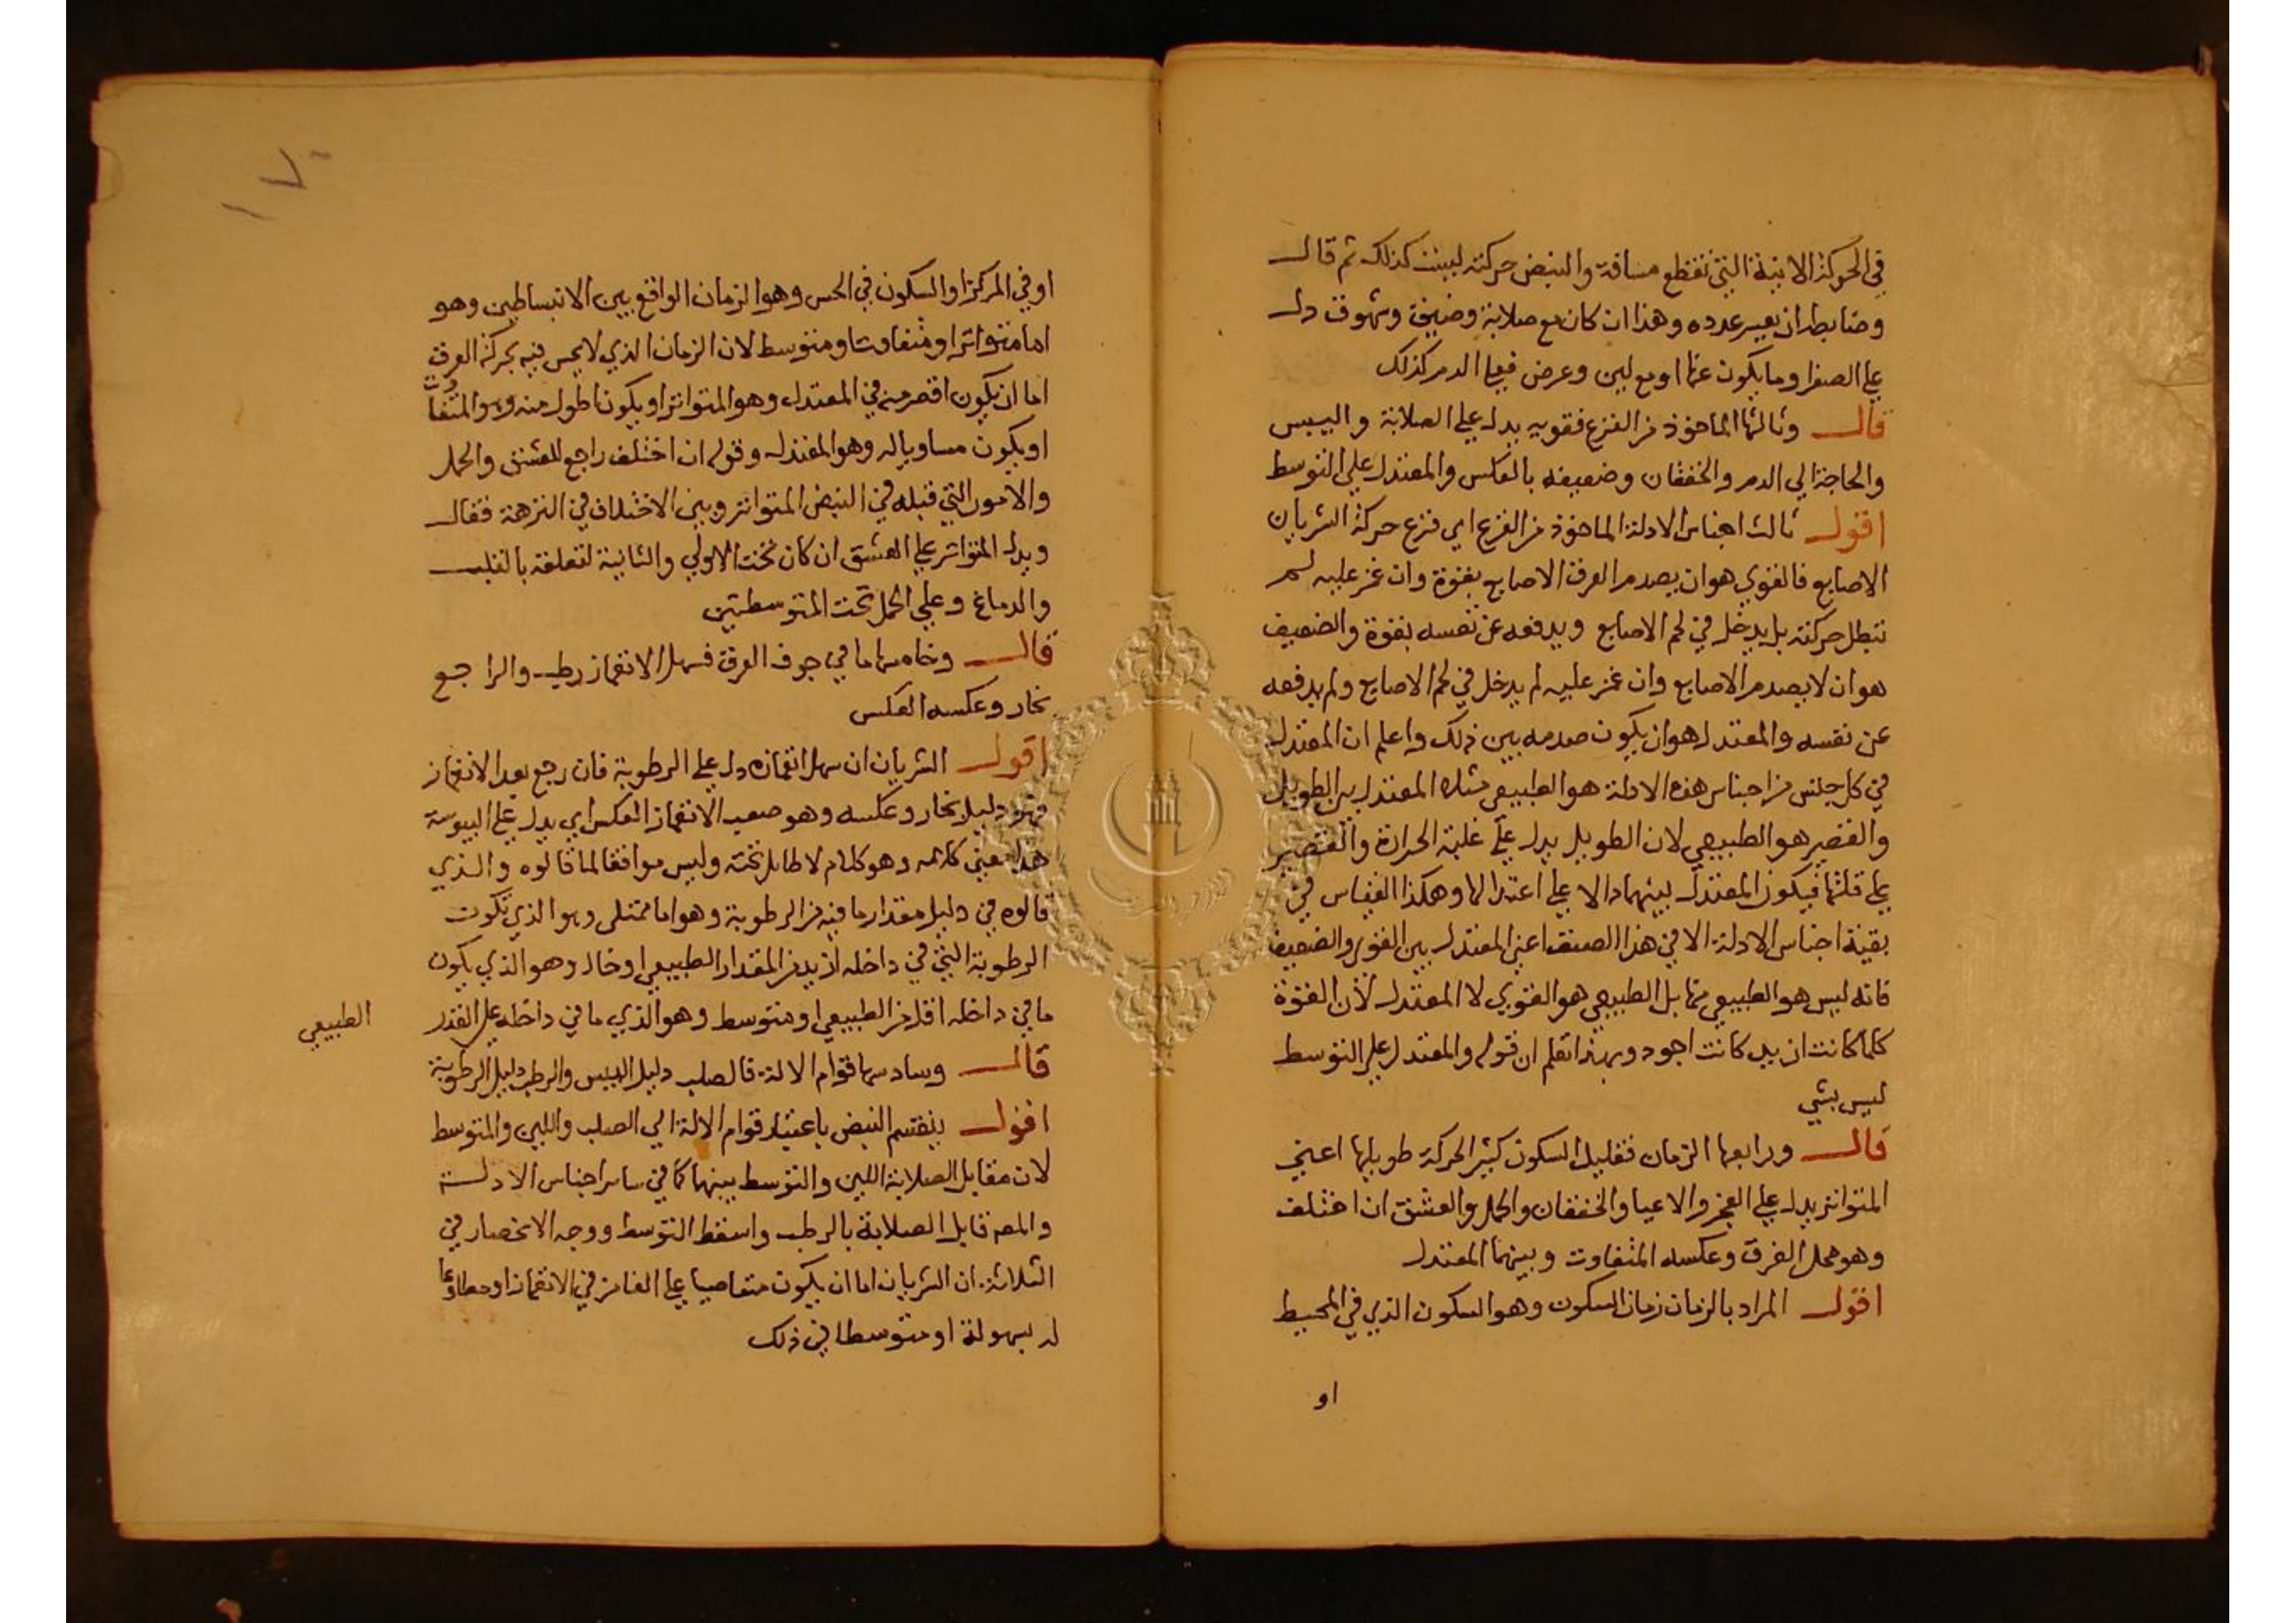 في الحركة الاينية التي تقطع مسافة والنبض حركته ليست كذلك ثم قال
وضابطه ان يعسر عدده وهذا ان كان مع صلابة وضيق وشهوق دل
علي الصفرا وما يكون عنها او مع لين وعرض فعلي الدم كذلك
قال وثالثها الماخوذ من القرع فقويه يدل علي الصلابة واليبس
والحاجة الي الدم والخفقان وضعيفه بالعكس والمعتدل علي التوسط
اقول ثالث اجناس الادلة الماخوذ من القرع اي قرع حركة الشريان
الاصابع فالقوي هو ان يصدم العرق الاصابع بقوة وان غمز عليه لم
تبطل حركته بل يدخل في لحم الاصابع ويدفعه عن نفسه بقوة والضعيف
هو ان لا يصدم الاصابع وان غمز عليه لم يدخل في لحم الاصابع ولم يدفعه
عن نفسه والمعتدل هو ان يكون صدمه بين ذلك واعلم ان المعتدل
في كل جنس من اجناس هذه الادلة هو الطبيعي مثلا المعتدل بين الطويل
والقصير هو الطبيعي لان الطويل يدل علي غلبة الحرارة والقصير
علي قلتها فيكون المعتدل بينهما دالا علي اعتدالها وهكذا القياس في
بقية اجناس الادلة الا في هذا الصنف اعني المعتدل بين القوي والضعيف
فانه ليس هو الطبيعي بل الطبيعي هو القوي لا المعتدل لان القوة
كلما كانت ازيد كانت اجود وبهذا تعلم ان قوله والمعتدل علي التوسط
ليس بشي
قال ورابعها الزمان فقليل السكون كثير الحركة طويلها اعني
المتواتر يدل علي العجز والاعيا والخفقان والحمل والعشق ان اختلف
وهو محل الفرق وعكسه المتفاوت وبينهما المعتدل
اقول المراد بالزمان زمان السكون وهو السكون الذي في المحيط
او
او في المركز او السكون في الحس وهو الزمان الواقع بين الانبساطين وهو
اما متواتر او متفاوت او متوسط لان الزمان الذي لا يحس فيه بحركة العرق
اما ان يكون اقصر منه في المعتدل وهو المتواتر او يكون اطول منه وهو المتفاوت
او يكون مساويا له وهو المعتدل وقوله ان اختلف راجع للعشق والحمل
والامور التي قبله في النبض المتواتر وبين الاختلاف في النزهة فقال
ويدل المتواتر علي العشق ان كان تحت الاولي والثانية لتعلقه بالقلب
والدماغ وعلي الحمل تحت المتوسطتين
قال وخامسها ما في جوف العرق فسهل الانغماز رطب والراجع
بخار وعكسه العكس
اقول الشريان ان سهل انغمازه دل علي الرطوبة فان رجع بعد الانغماز
فهو دليل بخار وعكسه وهو صعب الانغماز العكس اي يدل علي اليبوسة
هذا معني كلامه وهو كلام لا طايل تحته وليس موافقا لما قالوه والذي
قالوه في دليل مقدار ما فيه من الرطوبة وهو اما ممتلي وهو الذي تكون
الرطوبة التي في داخله ازيد من المقدار الطبيعي او خال وهو الذي يكون
ما في داخله اقل من الطبيعي او متوسط وهو الذي ما في داخله علي القدر
الطبيعي
قال وسادسها قوام الالة فالصلب دليل اليبس والرطب دليل الرطوبة
اقول ينقسم النبض باعتبار قوام الالة الي الصلب واللين والمتوسط
لان مقابل الصلابة اللين والتوسط بينهما كما في ساير اجناس الادلة
والمص قابل الصلابة بالرطب واسقط التوسط ووجه الانحصار في
الثلاثة ان الشريان اما ان يكون متعاصيا علي الغامز في الانغماز او مطاوعا
له بسهولة او متوسطا في ذلك